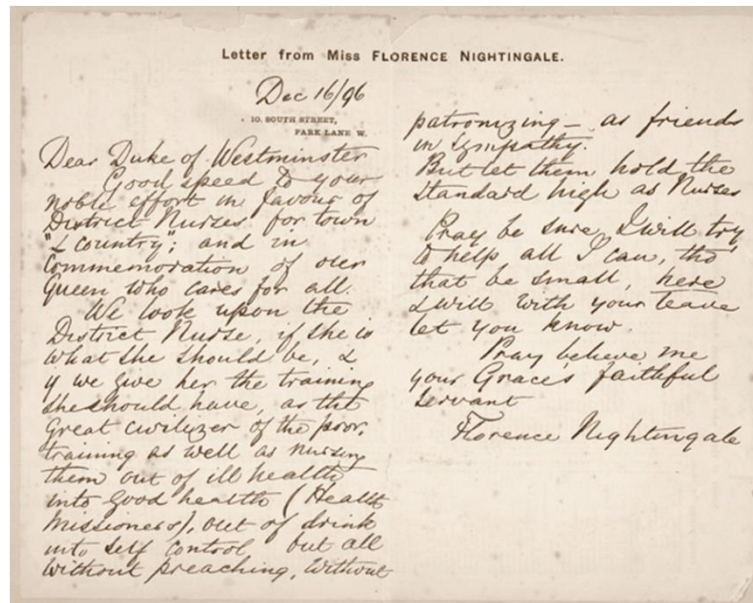 Letter from Miss FLORENCE NIGHTINGALE.
Dec 16/96
10. SOUTH STREET,
PARK LANE W.
Dear Duke of Westminster
Good speed to your
noble effort in favour of
District Nurses for town
"& country"; and in
Commemoration of our
Queen who cares for all.
We look upon the
District Nurse, if she is
what she should be, &
if we give her the training
she should have, as the
great civilizer of the poor,
training as well as nursing
them out of ill health
into good health (Health
Missioners), out of drink
into self control but all
without preaching, without
patronizing – as friends
in sympathy.
But let them hold the
standard high as Nurses
Pray be sure I will try
to help all I can, tho'
that be small, here
& will with your leave
let you know.
Pray believe me
your Grace's faithful
servant
Florence Nightingale